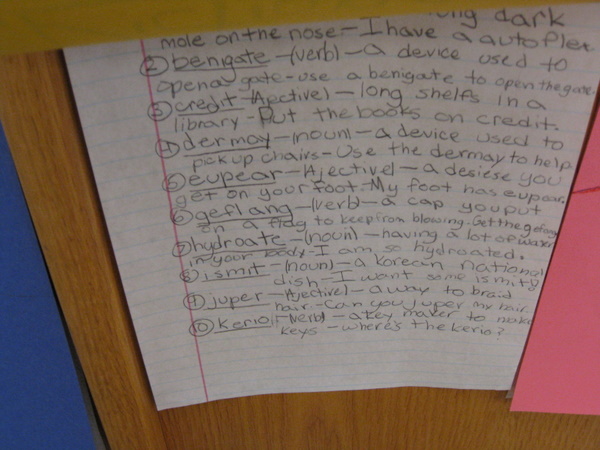 dark
mole on the nose - I have a autoflex
② benigate - (verb) - a device used to
open a gate - use a benigate to open the gate.
③ credit - (Ajective) - long shelfs in a
library - Put the books on credit.
④ dermay - (noun) - a device used to
pick up chairs - Use the dermay to help
⑤ eupear - (Ajective) - a desiese you
get on your foot - My foot has eupear.
⑥ geflang - (verb) - a cap you put
on a flag to keep from blowing. Get the geflang
⑦ hydroate - (noun) - having a lot of water
in your body - I am so hydroated.
⑧ ismit - (noun) - a Korean national
dish - I want some ismit?
⑨ juper - (Ajective) - a way to braid
hair. - Can you juper my hair.
⑩ kerio - (verb) - a key maker to make
keys - where's the kerio?